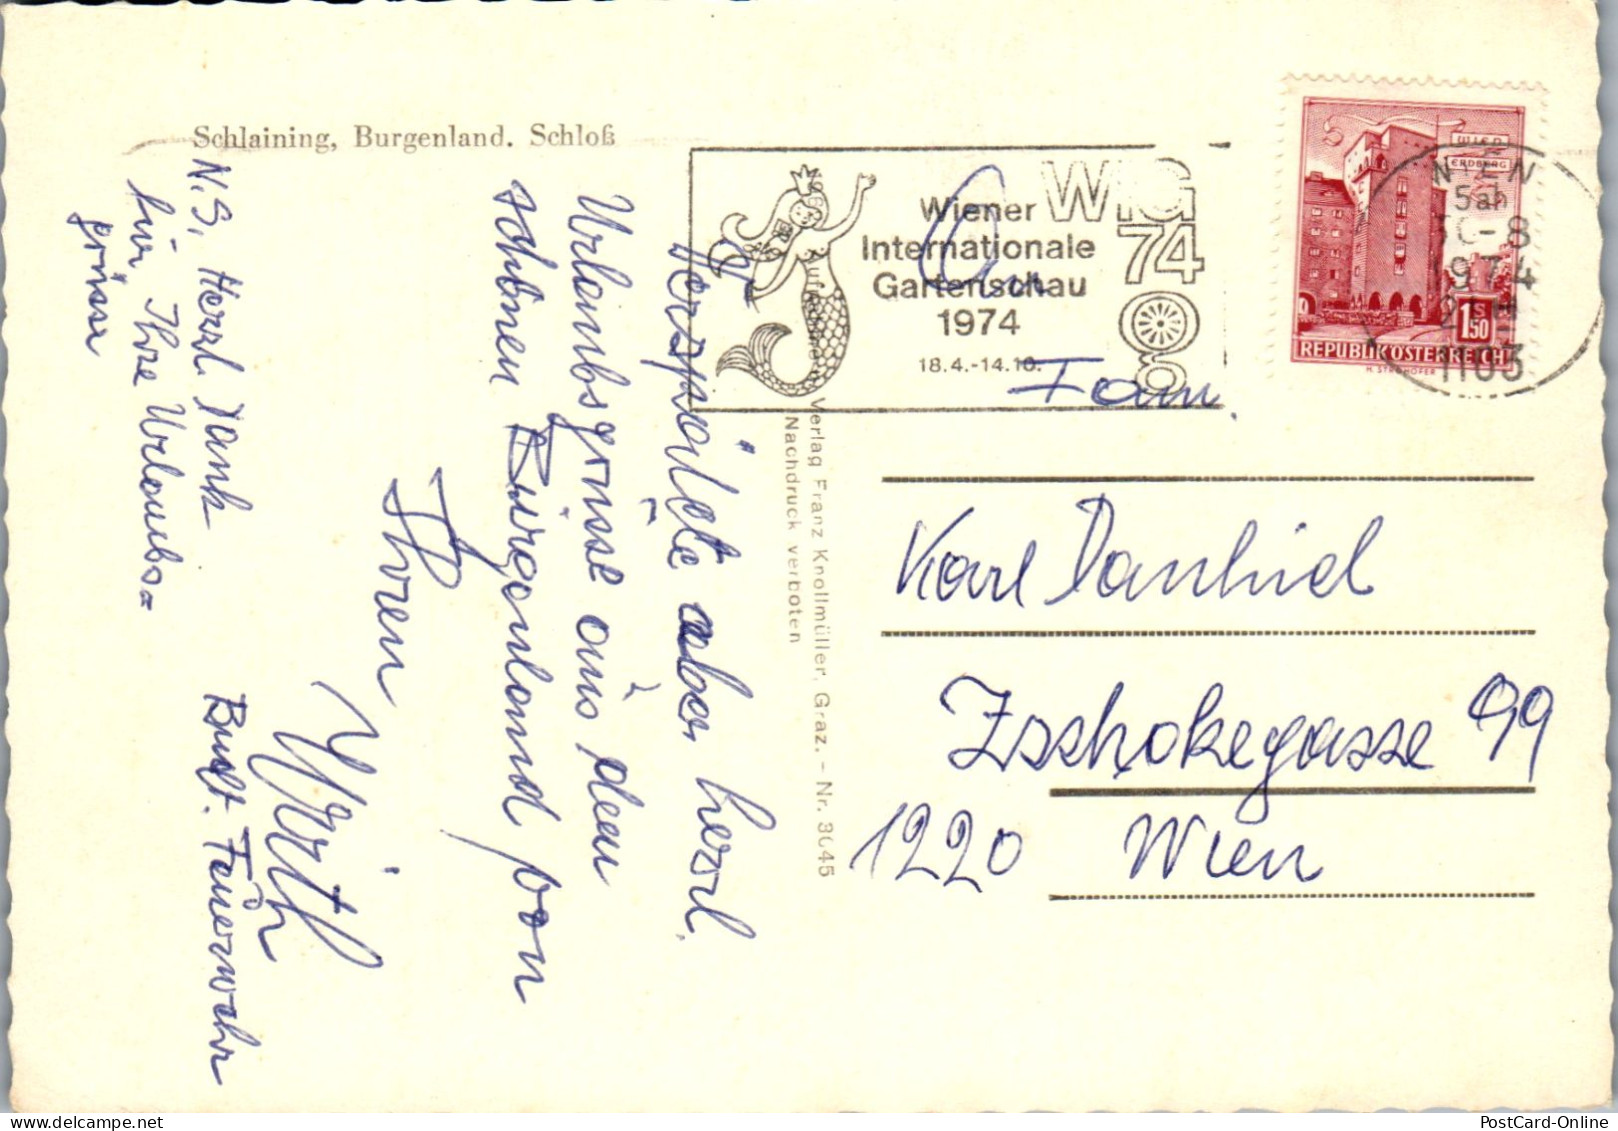 Schlaining, Burgenland. Schloß
Verspätete aber herzl.
Urlaubsgrüsse aus den
schönen Burgenland von
Ihren
Wirth
N.S. Herzl. Dank
für Ihre Urlaubs=
grüsse
Verlag Franz Knollmüller, Graz. – Nr. 3045
Nachdruck verboten
Wiener
Internationale
Gartenschau
1974
18.4.-14.10.
WIG
74
WIEN
ERDBERG
1974
1103
S
1.50
REPUBLIK ÖSTERREICH
An
Fam.
Karl Danhiel
Zschokegasse 99
1220 Wien
PostCard-Online